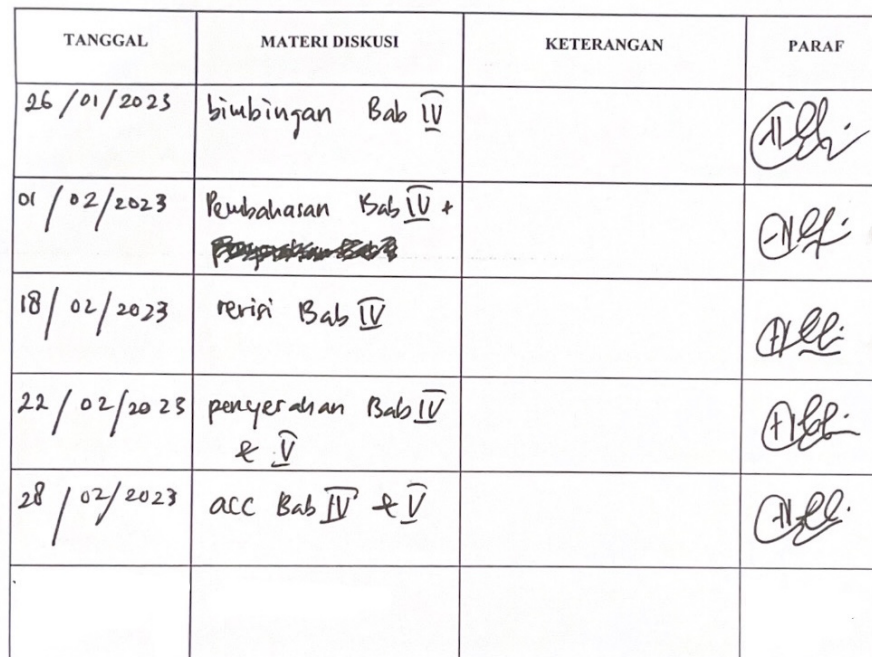 TANGGAL MATERI DISKUSI KETERANGAN PARAF
26/01/2023 bimbingan Bab IV
01/02/2023 Pembahasan Bab IV +
18/02/2023 revisi Bab IV
22/02/2023 penyerahan Bab IV
& V
28/02/2023 acc Bab IV & V